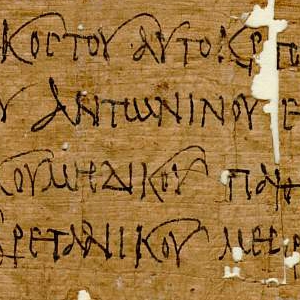 κοστου αυτοκρ
υ αντωνινου ε
κου μηδικου παρ
βρετανικου μεγι